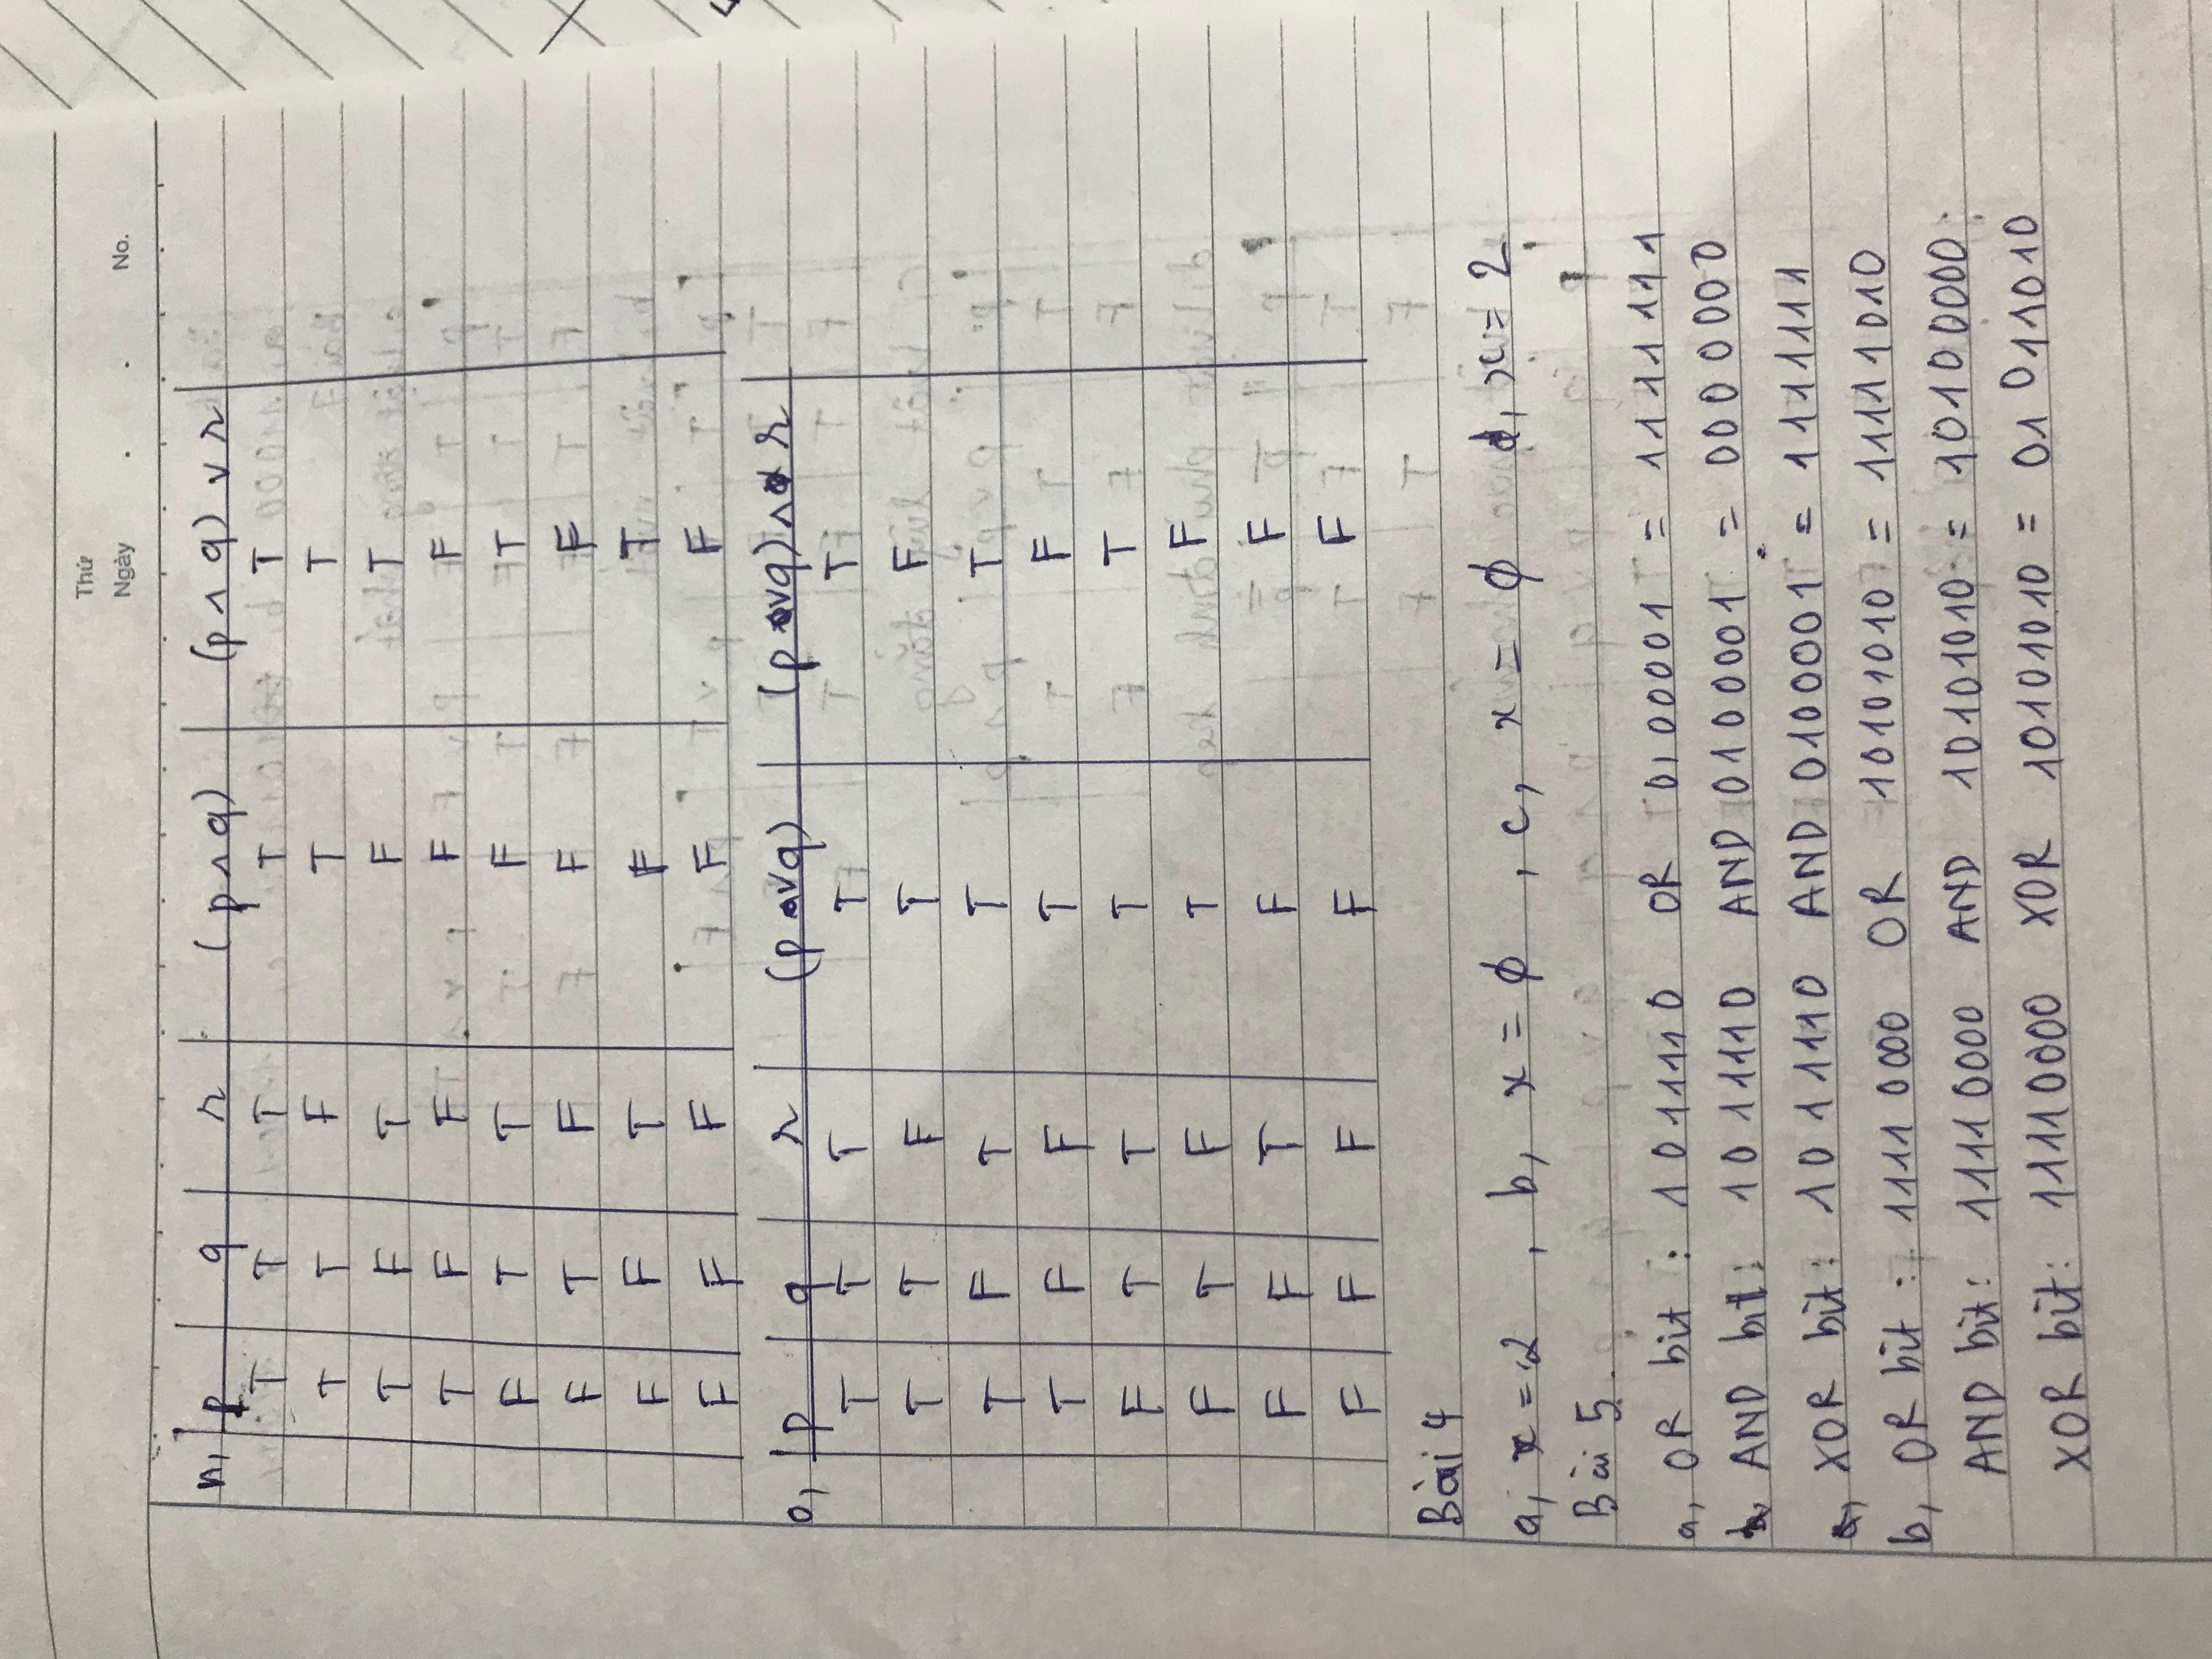 Thứ
Ngày . . No.
n, p q r (p ∧ q) (p ∧ q) ∨ r
T T T T T
T T F T T
T F T F T
T F F F F
F T T F T
F T F F F
F F T F T
F F F F F
o, p q r (p ∨ q) (p ∨ q) ∧ r
T T T T T
T T F T F
T F T T T
T F F T F
F T T T T
F T F T F
F F T F F
F F F F F
Bài 4
a, x = 2 , b, x = ∅ , c, x = ∅ d, x = 2
Bài 5.
a, OR bit : 1011110 OR 0100001 = 1111111
AND bit: 1011110 AND 0100001 = 0000000
XOR bit: 1011110 AND 0100001 = 1111111
b, OR bit : 11110000 OR 10101010 = 11111010
AND bit: 11110000 AND 10101010 = 10100000
XOR bit: 11110000 XOR 10101010 = 01011010